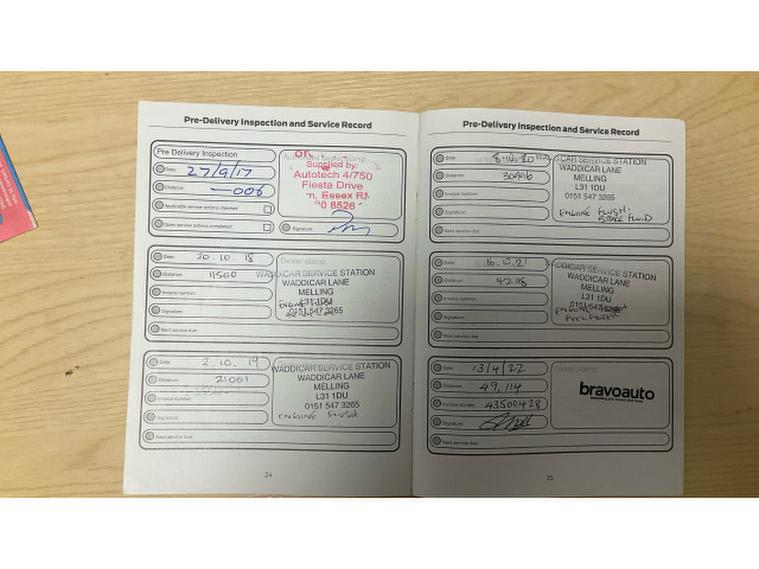 Pre-Delivery Inspection and Service Record
Pre Delivery Inspection
Date: 27/9/17
Distance: 006
Applicable service actions checked
Open service actions completed
Authorised dealer stamp
Supplied by:
Autotech 4/750
Fiesta Drive
Essex RM
0 8526
Signature
Date 20.10.18
Distance: 11500
Invoice number:
Signature:
Next service due:
Dealer stamp
WADDICAR SERVICE STATION
WADDICAR LANE
MELLING
L31 1DU
0151 547 3265
Date 2.10.19
Distance: 21001
Invoice number:
Signature:
Next service due:
WADDICAR SERVICE STATION
WADDICAR LANE
MELLING
L31 1DU
0151 547 3265
ENGINE FLUSH
24
Pre-Delivery Inspection and Service Record
Date 8.10.20
Distance:
Invoice number:
Signature:
Next service due:
CAR SERVICE STATION
WADDICAR LANE
MELLING
L31 1DU
0151 547 3265
ENGINE FLUSH.
BRAKE FLUID
Date 16.10.21
Distance:
Invoice number:
Signature:
Next service due:
WADDICAR SERVICE STATION
WADDICAR LANE
MELLING
L31 1DU
0151 547
FUEL FILTER
Date 13/4/22
Distance: 49,114
Invoice number: 43500428
Signature:
Next service due:
Dealer stamp
bravoauto
25